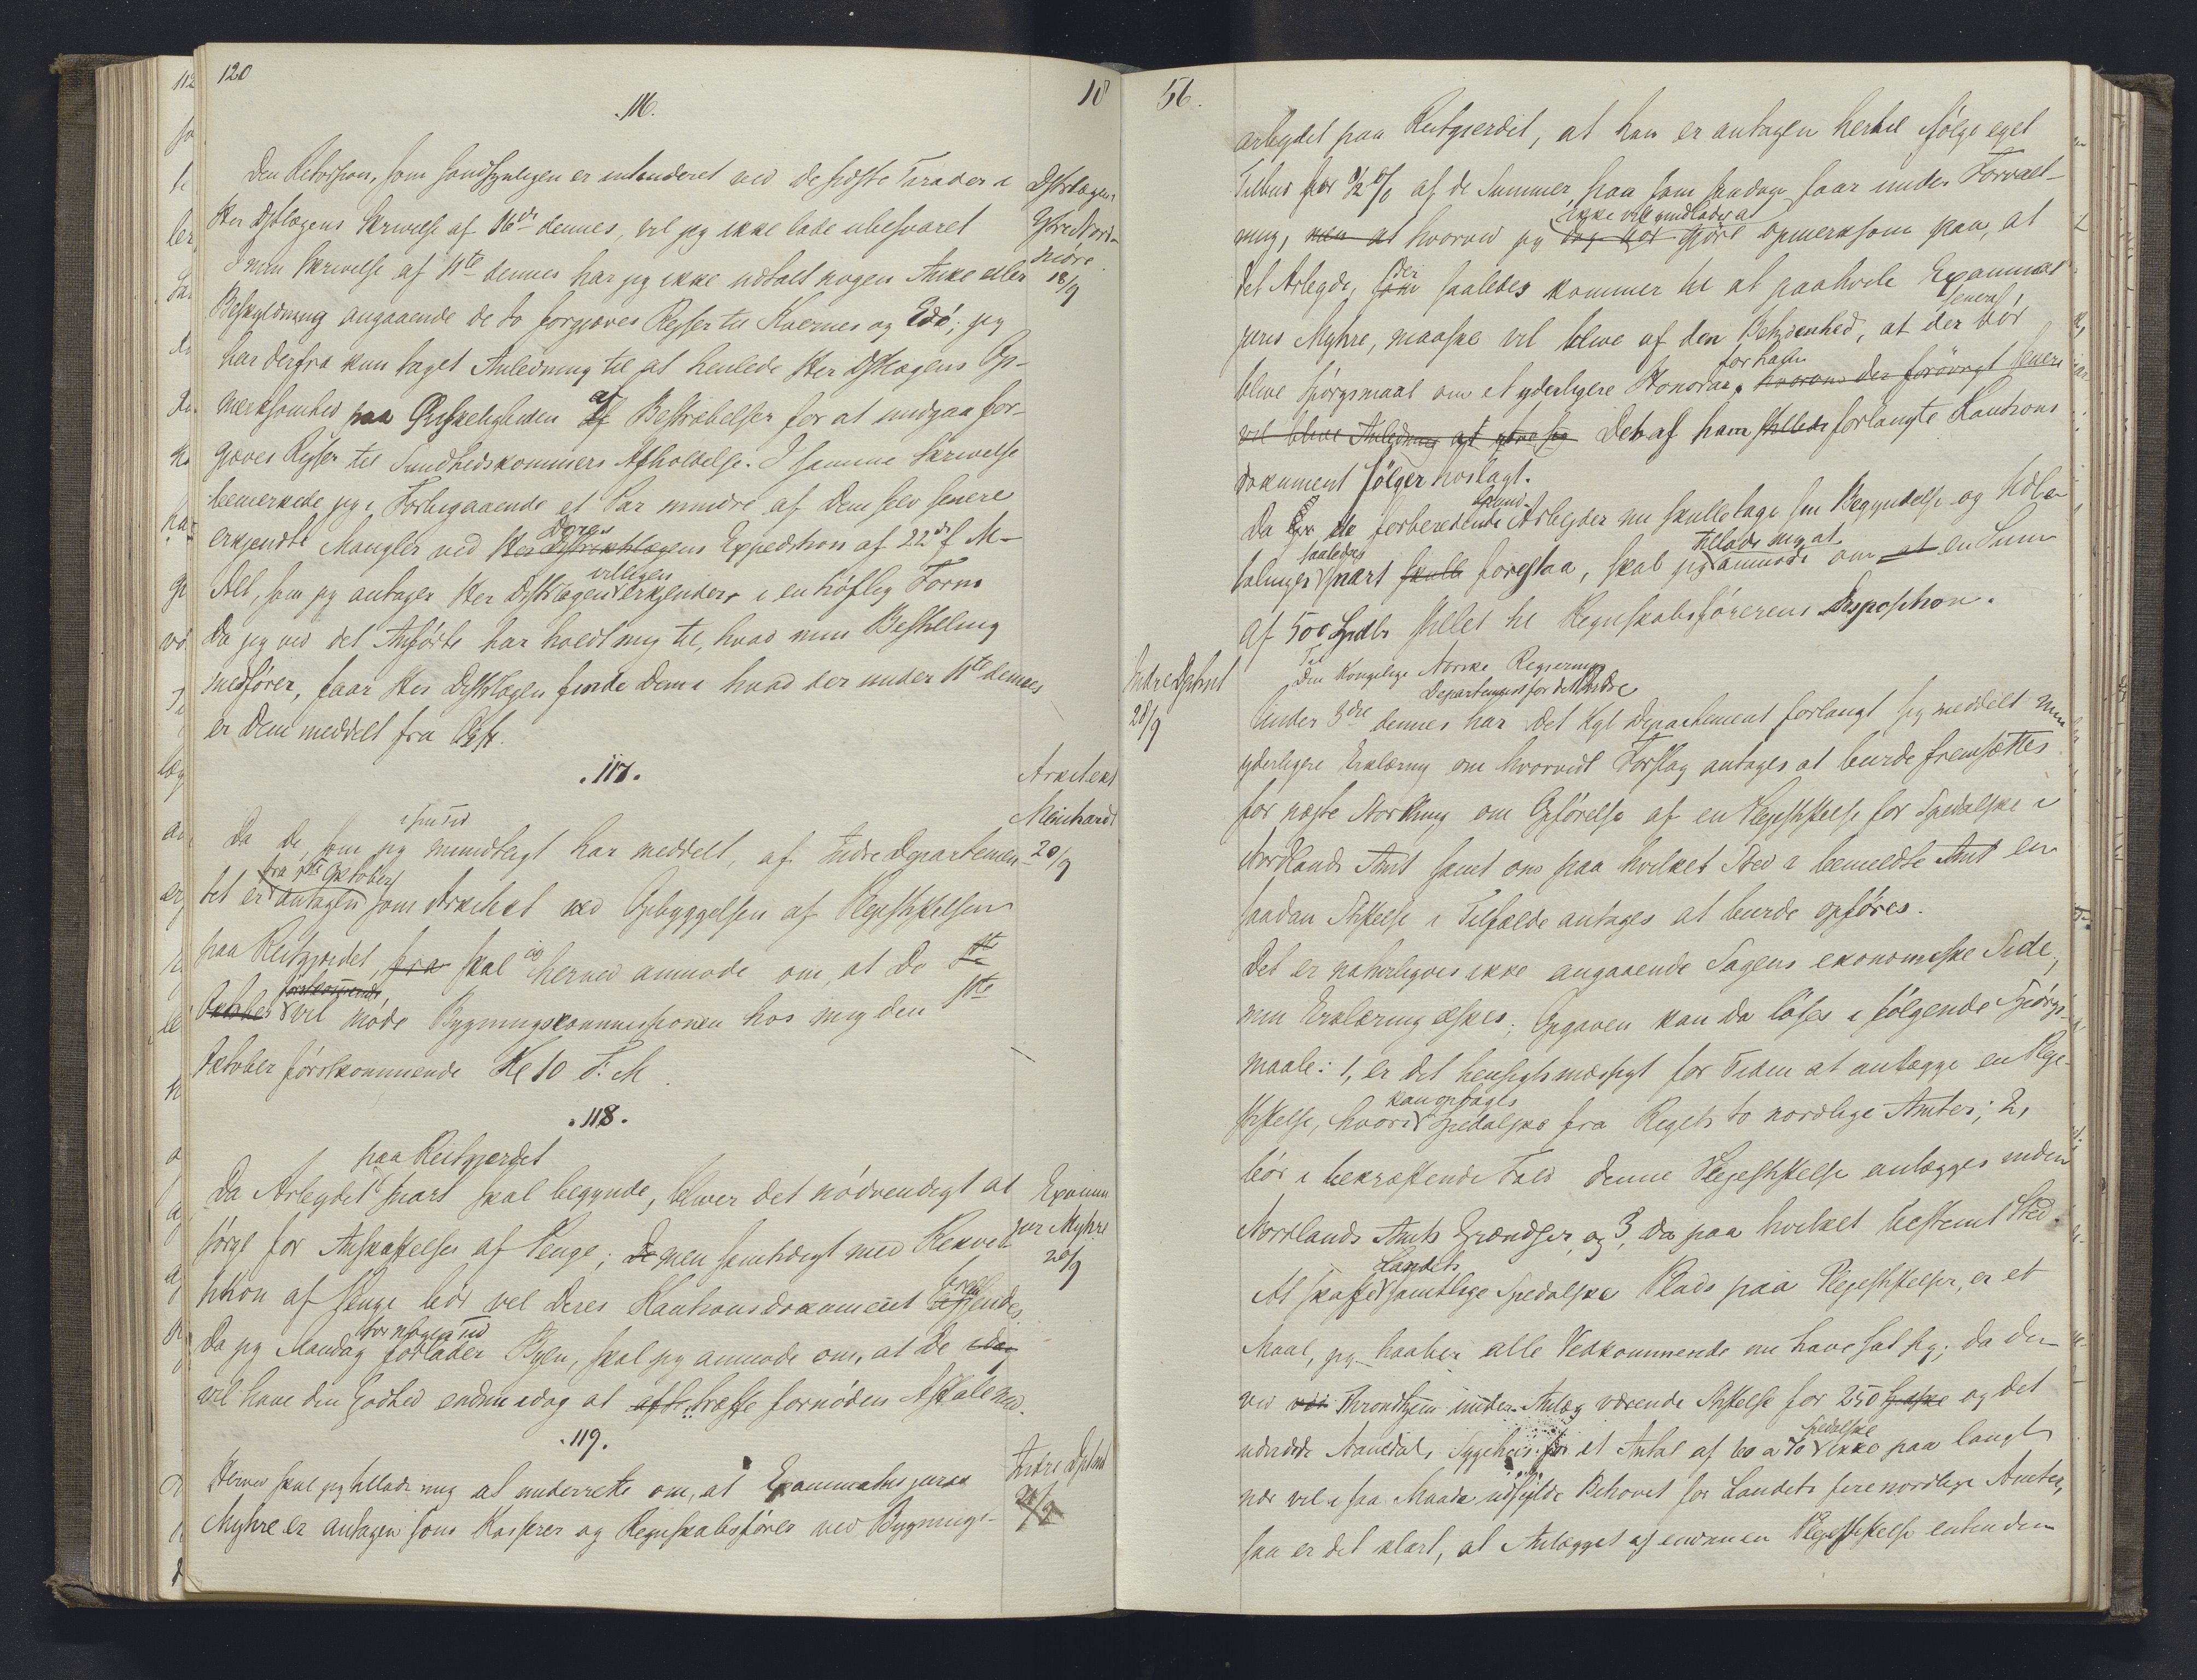 120
18
116.
Den Retorsion, som sandsynligen er intenderet ved de sidste Tirader i
Hr Distrlægens Skrivelse af 16de dennes, vil jeg ikke lade ubesvaret
I min Skrivelse af 11te dennes har jeg ikke udtalt nogen Anke eller
Beskyldning angaaende de to forgjæves Reiser til Kvernes og Edö; jeg
har derfra kun taget Anledning til at henlede Hr Distrlægens Op-
mærksomhed paa Ønskeligheden af Bestræbelser for at undgaa for-
gjæves Reiser til Sundhedskommiss Afholdelse. I samme Skrivelse
bemerkede jeg i Forbigaaende et Par mindre af Dem selv senere
erkjendte Mangler ved Hr Distriktslægens Deres Expedition af 22de f M-
Alt, som jeg antager Hr Distrlægen villigen erkjender, i en höflig Form
Da jeg ved det Anförte har holdt mig til, hvad min Bestilling
medförer, faar Hr Distrlægen finde Dem i hvad der under 11te dennes
er Dem meddelt fra
Distrlægen
Ytre Nord-
möre
18/9
.117.
Arkitekt
Meinhardt
20/9
Da De, som jeg i sin Tid mundtligt har meddelt, af Indre Departemen-
tet er fra 1ste Oktober antagen som Arkitekt ved Opbyggelsen af Pleiestiftelsen
paa Reitgjerdet, fra skal jeg herved anmode om, at De 1ste
Oktober förstkommende vil möde Bygningskommissionen hos mig den 1ste
Oktober förstkommende Kl 10 F. M.
.118.
paa Reitgjerdet
Da Arbeydet snart skal begynde, bliver det nödvendigt at
sörge for Anskaffelse af Penge; De men samtidigt med Rekvi-
sition af Penge bör vel Deres Kautionsdokument indsendes
Da jeg Mandag for nogen Tid forlader Byen, skal jeg anmode om, at De idag
vil have den Godhed endnu idag at træffe fornöden Aftale med.
Examin
jur Myhre
20/9
.119.
Herved skal jeg tillade mig at underrette om, at Examinatus juris
Myhre er antagen som Kasserer og Regnskabsförer ved Bygnings-
Indre Dptmt
20/9
56.
arbeydet paa Reitgjerdet, at han er antagen hertil ifölge eget
Tilbud for 1/2 % af de Summer, han som saadan faar under Forvalt-
ning, men at hvorved jeg ikke vil undlade a gjöre opmerksom paa, at
det Arbeyde, som der saaledes kommer til at paahvile Examinat
juris Myhre, maaske vil blive af den Betydenhed, at der senere, bör
blive Spörgsmaal om et yderligere Honorar for ham, hvorom der forövrigt senere
vil blive Anledning at ytre sig Det af ham stillede forlangte Kautions
dokument fölger hoslagt.
Da de forberedende Arbeyder nu skulle tage sin Begyndelse og Udbe-
talinger saaledes snart skulle forestaa, skal jeg tillade mig at anmode om at en Sum
af 500 Spdlr stillet til Regnskabsförerens Disposition.
Indre Dptmt
20/9
Til
Den Kongelige Norske Regjerings
Departement for det Indre
Under 3die dennes har det Kgl Departement forlangt sig meddelt min
yderligere Erklæring om hvorvidt Forslag antages at burde fremsættes
for næste Storthing om Opförelse af en Pleiestiftelse for Spedalske i
Nordlands Amt samt om paa hvilket Sted i bemeldte Amt en
saadan Stiftelse i Tilfælde antages at burde opföres.
Det er naturligvis ikke angaaende Sagens ekonomiske Side,
min Erklæring æskes; Opgaven kan da löses i fölgende Spörgs-
maale: 1, er det hensigtsmæssigt for Tiden at anlægge en Pleie-
stiftelse, hvori kan optages Spedalske fra Rigets to nordlige Amter; 2,
bör i bekræftende Fald denne Pleiestiftelse anlægges inden
Nordlands Amts Grændser, og 3, da paa hvilket bestemt Sted.
At skaffe Landets samtlige Spedalske Plads paa Pleiestiftelser, er et
Maal, jeg haaber alle Vedkommende nu have sat sig; da den
ved Throndhjem under Anlæg værende Stiftelse for 250 og det
udvidede Sygehus for et Antal af Spedalske ikke paa langt
nær vil i saa Maade udfylde Behovet for Landets fire nordlige Amter,
saa er det klart, at Anlægget af endnu en Pleiestiftelse enten den